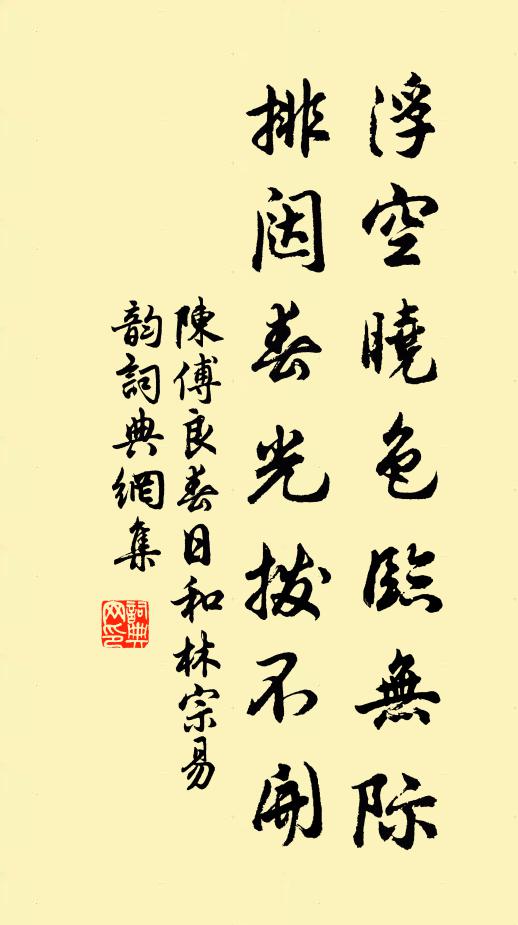 浮空曉色臨無際
排闥春光撥不開
陳傅良春日和林宗易
韵詞典網集
詞典网印